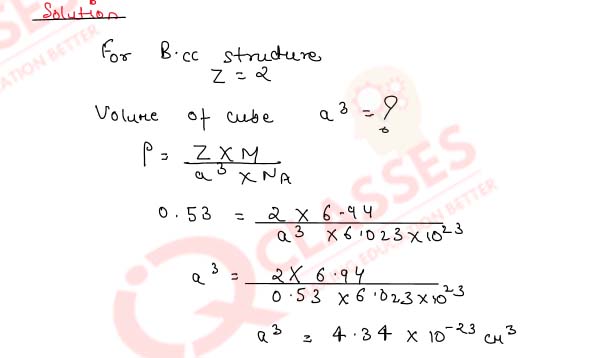 Solution
For B.cc structure
Z = 2
Volume of cube a³ = ?
ρ = Z × M / a³ × NA
0.53 = 2 × 6.94 / a³ × 6.023 × 10²³
a³ = 2 × 6.94 / 0.53 × 6.023 × 10²³
a³ = 4.34 × 10⁻²³ cm³
CLASSES
EDUCATION BETTER
CLASSES
EDUCATION BETTER